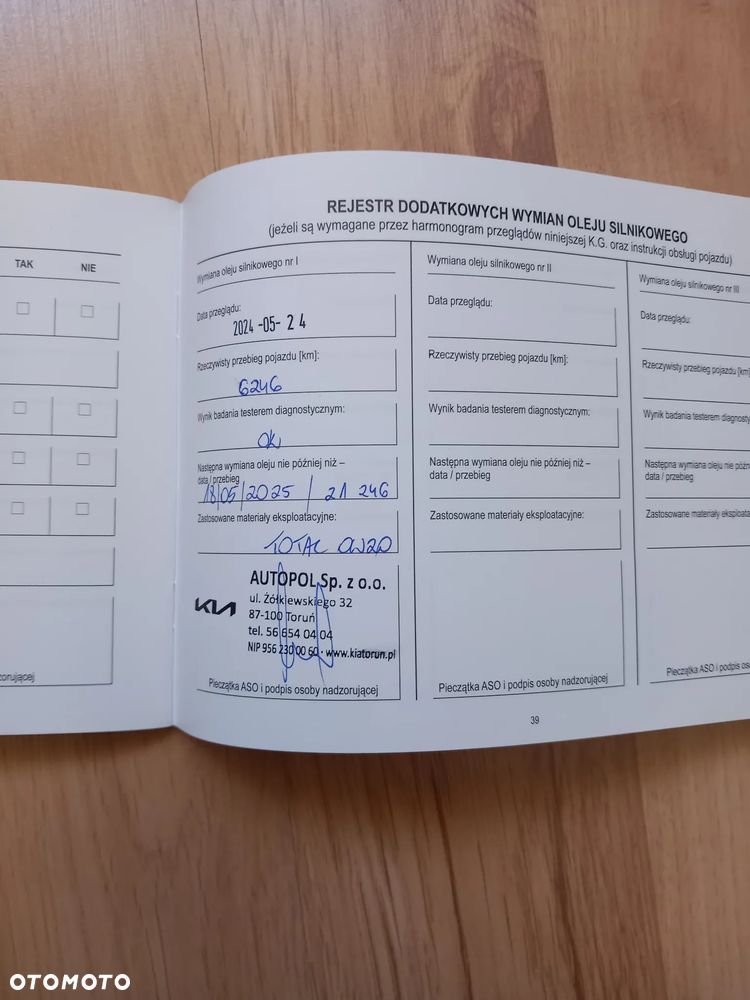 TAK NIE
zorującej
REJESTR DODATKOWYCH WYMIAN OLEJU SILNIKOWEGO
(jeżeli są wymagane przez harmonogram przeglądów niniejszej K.G. oraz instrukcji obsługi pojazdu)
Wymiana oleju silnikowego nr I
Data przeglądu:
2024-05-24
Rzeczywisty przebieg pojazdu [km]:
6246
Wynik badania testerem diagnostycznym:
OK
Następna wymiana oleju nie później niż –
data / przebieg
18/05/2025 / 21 246
Zastosowane materiały eksploatacyjne:
TOTAL 0W20
KIA
AUTOPOL Sp. z o.o.
ul. Żółkiewskiego 32
87-100 Toruń
tel. 56 654 04 04
NIP 956 230 00 60 · www.kiatorun.pl
Pieczątka ASO i podpis osoby nadzorującej
Wymiana oleju silnikowego nr II
Data przeglądu:
Rzeczywisty przebieg pojazdu [km]:
Wynik badania testerem diagnostycznym:
Następna wymiana oleju nie później niż –
data / przebieg
Zastosowane materiały eksploatacyjne:
Pieczątka ASO i podpis osoby nadzorującej
Wymiana oleju silnikowego nr III
Data przeglądu:
Rzeczywisty przebieg pojazdu [km]
Wynik badania testerem diagnosty
Następna wymiana oleju nie późn
data / przebieg
Zastosowane materiały eksploata
Pieczątka ASO i podpis os
39
OTOMOTO